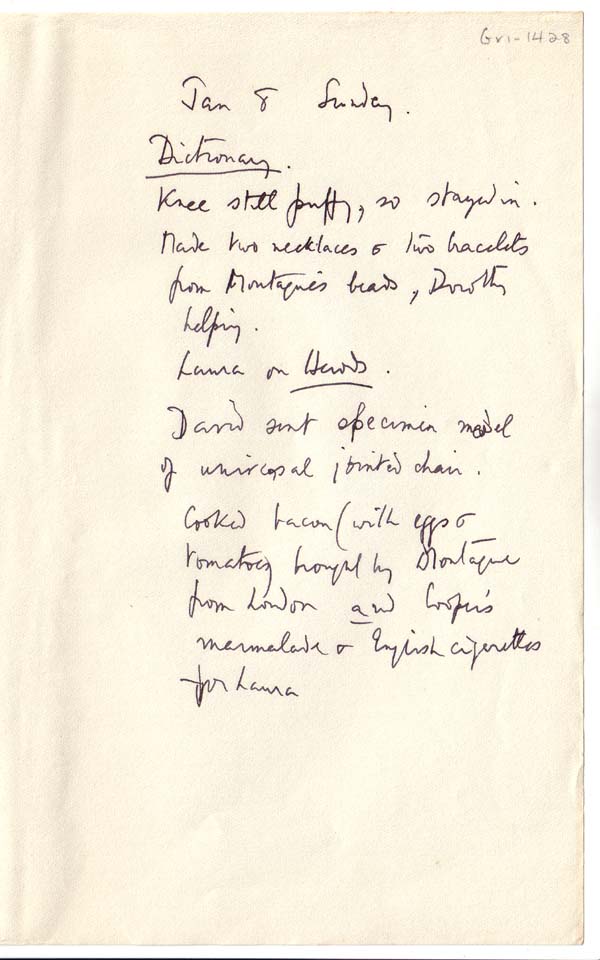 Gv1-1428
Jan 8 Sunday.
Dictionary.
Knee still puffy, so stayed in.
Made two necklaces & two bracelets
from Montague's beads, Dorothy
helping.
Laura on Herods.
David sent specimen model
of universal jointed chain.
Cooked bacon (with eggs &
tomatoes) brought by Montague
from London and Cooper's
marmalade & English cigarettes
for Laura